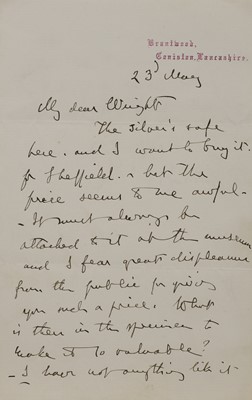 Brantwood,
Coniston, Lancashire.
23d May
My dear Wright
The silver's safe
here. and I want to buy it.
for Sheffield. - but the
price seems to me awful -
- It must always be
attached to it at the museum
and I fear great displeasure
from the public for giving
you such a price. What
is there in the specimen to
make it so valuable?
- I have not anything like it